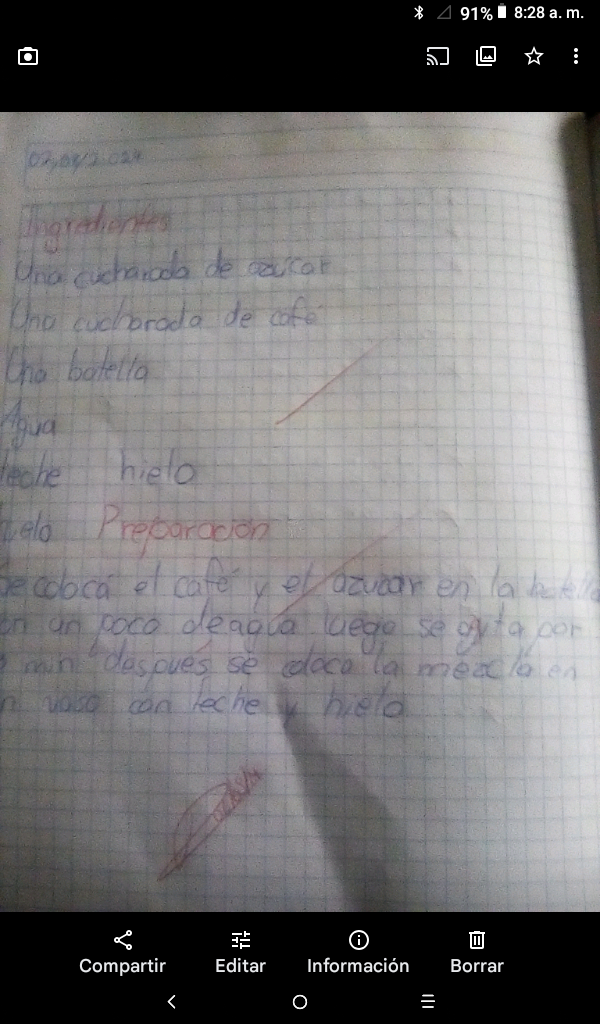 91% 8:28 a. m.
Ingredientes
Una cucharada de azúcar
Una cucharada de café
Una botella
Agua
leche hielo
hielo Preparación
se coloca el café y el azucar en la botella
un poco de agua luego se agita por
min después se coloca la mezcla en
vaso con leche y hielo
Compartir Editar Información Borrar